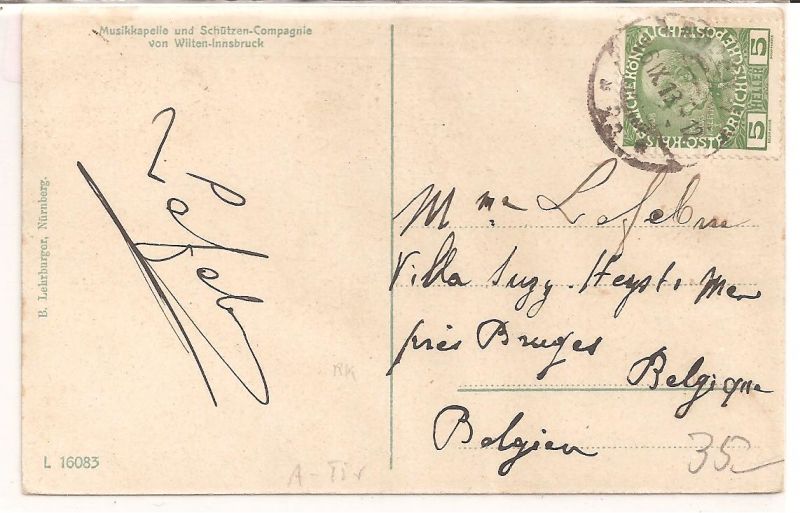 Musikkapelle und Schützen-Compagnie
von Wilten-Innsbruck
5 HELLER 5
B. Lehrburger, Nürnberg.
Lefeb
Mme Lefebvre
Villa Suzy. Heyst s Mer
près Bruges
Belgique
Belgien
RK
L 16083
A-Tir
35